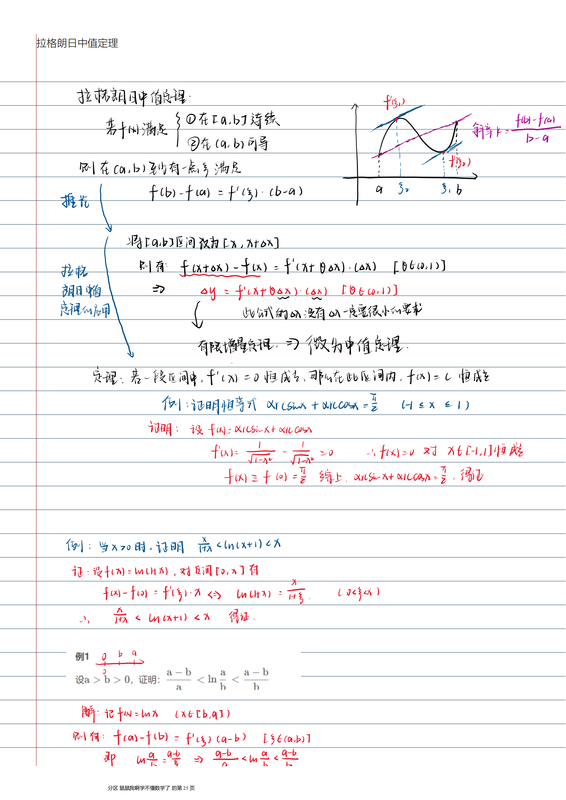 拉格朗日中值定理
拉格朗日中值定理:
若f(x)满足 { ①在[a,b]连续
②在(a,b)可导
则在(a,b)至少有一点ξ满足
f(b)-f(a) = f'(ξ)·(b-a)
f'(ξ₁)
f'(ξ₂)
斜率k = (f(b)-f(a))/(b-a)
a ξ₂ ξ₁ b
推广
将[a,b]区间设为[x, x+Δx]
则有: f(x+Δx)-f(x) = f'(x+θΔx)·(Δx) [θ∈(0,1)]
⇒ Δy = f'(x+θΔx)·(Δx) [θ∈(0,1)]
此公式的Δx没有Δx一定要很小的要求
有限增量定理 ⇒ 微分中值定理.
拉格
朗日中值
定理的应用
定理: 若一段区间中, f'(x)=0恒成立, 那么在此区间内, f(x)=C 恒成立
例: 证明恒等式 arcsinx + arccosx = π/2 (-1 ≤ x ≤ 1)
证明: 设 f(x)=arcsinx + arccosx
f'(x) = 1/√(1-x²) - 1/√(1-x²) = 0 ∴ f(x)=0 对 x∈[-1,1]恒成立
f(x) ≡ f(0) = π/2 综上, arcsinx + arccosx = π/2, 得证
例: 当x>0时, 证明 x/(1+x) < ln(x+1) < x
证: 设f(x)=ln(1+x), 对区间[0,x]有
f(x)-f(0) = f'(ξ)·x ⇔ ln(1+x) = x/(1+ξ) (0<ξ<x)
∴ x/(1+x) < ln(x+1) < x 得证.
例1 0 b a
设a > b > 0, 证明: (a-b)/a < ln a/b < (a-b)/b
解: 记f(x)=lnx (x∈[b,a])
则有: f(a)-f(b) = f'(ξ)(a-b) [ξ∈(a,b)]
即 ln a/b = (a-b)/ξ ⇒ (a-b)/a < ln a/b < (a-b)/b